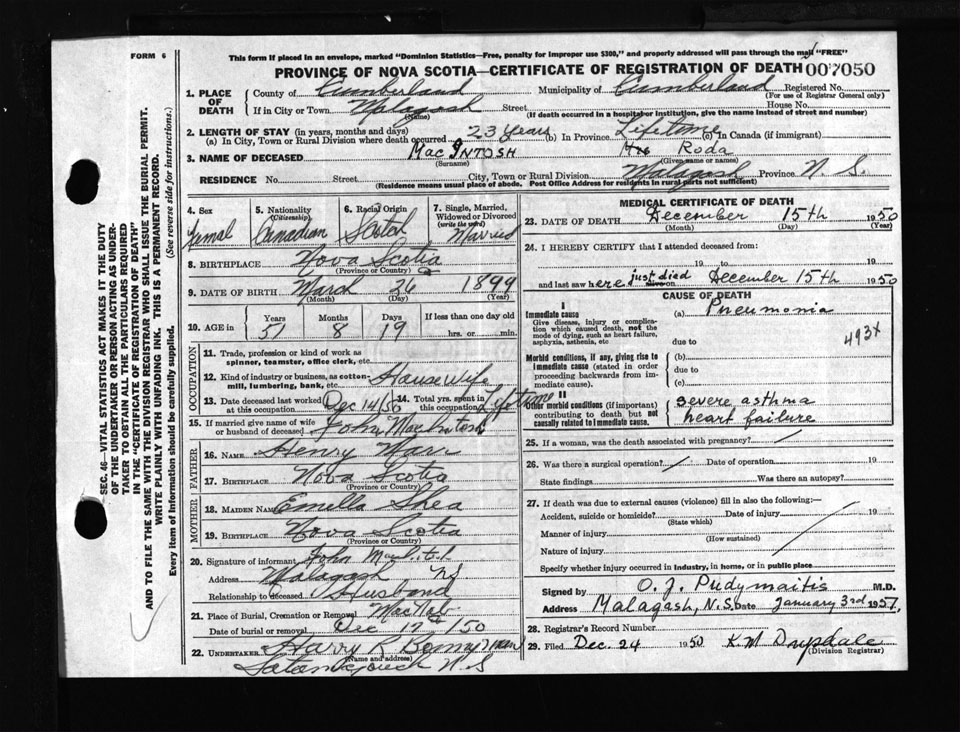 FORM 6
This form if placed in an envelope, marked "Dominion Statistics—Free, penalty for improper use $300," and properly addressed will pass through the mail "FREE"
PROVINCE OF NOVA SCOTIA—CERTIFICATE OF REGISTRATION OF DEATH 007050
1. PLACE OF DEATH
County of Cumberland Municipality of Cumberland Registered No.
(For use of Registrar General only)
If in City or Town Malagash Street House No.
(Name) (If death occurred in a hospital or institution, give the name instead of street and number)
2. LENGTH OF STAY (in years, months and days)
(a) In City, Town or Rural Division where death occurred 23 Years (b) In Province Lifetime (c) In Canada (if immigrant)
3. NAME OF DECEASED MacINTOSH Roda
(Surname) (Given name or names)
RESIDENCE No. Street City, Town or Rural Division Malagash Province N. S.
(Residence means usual place of abode. Post Office Address for residents in rural parts not sufficient)
4. Sex Femal
5. Nationality (Citizenship) Canadian
6. Racial Origin Scotch
7. Single, Married, Widowed or Divorced (write the word) Married
8. BIRTHPLACE Nova Scotia
(Province or Country)
9. DATE OF BIRTH March 26 1899
(Month) (Day) (Year)
10. AGE in Years 51 Months 8 Days 19 If less than one day old hrs. or min.
OCCUPATION
11. Trade, profession or kind of work as spinner, teamster, office clerk, etc.
12. Kind of industry or business, as cotton-mill, lumbering, bank, etc. House wife
13. Date deceased last worked at this occupation Dec 14/50 14. Total yrs. spent in this occupation Lifetime
15. If married give name of wife or husband of deceased John MacIntosh
FATHER
16. NAME Henry
17. BIRTHPLACE Nova Scotia
(Province or Country)
MOTHER
18. MAIDEN NAME Emella Shea
19. BIRTHPLACE Nova Scotia
(Province or Country)
20. Signature of informant John
Address Malagash NS
Relationship to deceased Husband
21. Place of Burial, Cremation or Removal MacNab
Date of burial or removal Dec 17th 150
22. UNDERTAKER Harry R
(Name and address)
N. S
MEDICAL CERTIFICATE OF DEATH
23. DATE OF DEATH December 15th 1950
(Month) (Day) (Year)
24. I HEREBY CERTIFY that I attended deceased from:
19 to 19
and last saw here just died alive on December 15th 1950
CAUSE OF DEATH
I
Immediate cause (a) Pneumonia
Give disease, injury or complication which caused death, not the mode of dying, such as heart failure, asphyxia, asthenia, etc
due to
493x
Morbid conditions, if any, giving rise to immediate cause (stated in order proceeding backwards from immediate cause).
(b)
due to
(c)
II
Other morbid conditions (if important) contributing to death but not causally related to immediate cause.
severe asthma
heart failure
25. If a woman, was the death associated with pregnancy?
26. Was there a surgical operation? Date of operation 19
State findings Was there an autopsy?
27. If death was due to external causes (violence) fill in also the following:—
Accident, suicide or homicide? Date of injury 19
(State which)
Manner of injury
(How sustained)
Nature of injury
Specify whether injury occurred in industry, in home, or in public place
Signed by O. J. Pudymaitis M.D.
Address Malagash, N.S. Date January 3rd 1951.
28. Registrar's Record Number
29. Filed Dec. 24 1950 K. M Drysdale
(Division Registrar)
SEC. 46—VITAL STATISTICS ACT MAKES IT THE DUTY
OF THE UNDERTAKER OR PERSON ACTING AS UNDER-
TAKER TO OBTAIN ALL THE PARTICULARS REQUIRED
IN THE "CERTIFICATE OF REGISTRATION OF DEATH"
AND TO FILE THE SAME WITH THE DIVISION REGISTRAR WHO SHALL ISSUE THE BURIAL PERMIT.
WRITE PLAINLY WITH UNFADING INK. THIS IS A PERMANENT RECORD.
Every item of Information should be carefully supplied. (See reverse side for instructions.)